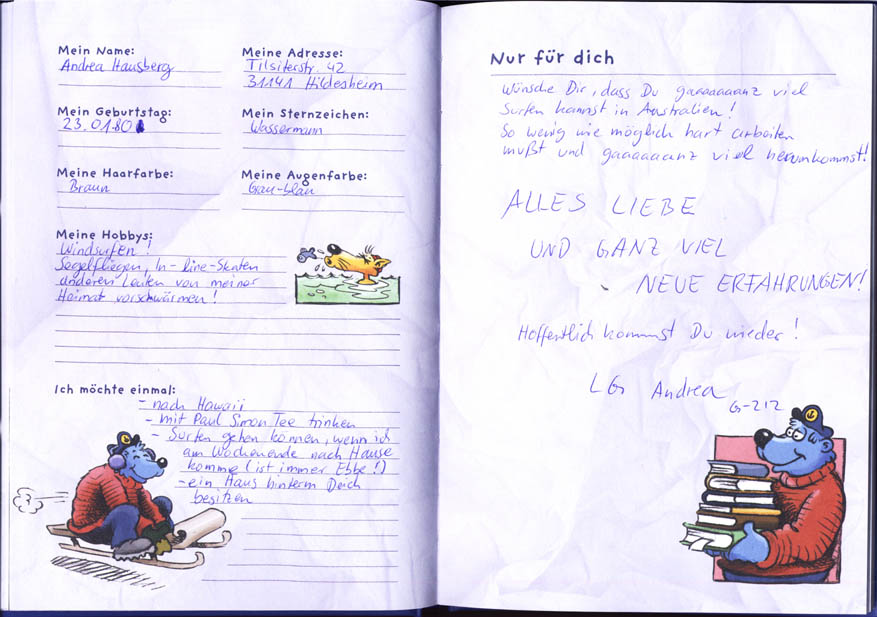 Mein Name:
Andrea Hausberg
Meine Adresse:
Tilsiterstr. 42
31141 Hildesheim
Mein Geburtstag:
23.01.80
Mein Sternzeichen:
Wassermann
Meine Haarfarbe:
Braun
Meine Augenfarbe:
Grau-blau
Meine Hobbys:
Windsurfen!
Segelfliegen, In-line-Skaten
anderen Leuten von meiner
Heimat vorschwärmen!
Ich möchte einmal:
- nach Hawaii
- mit Paul Simon Tee trinken
- Surfen gehen können, wenn ich
am Wochenende nach Hause
komme (ist immer Ebbe!)
- ein Haus hinterm Deich
besitzen
Nur für dich
Wünsche Dir, dass Du gaaaaaaanz viel
Surfen kannst in Australien!
So wenig wie möglich hart arbeiten
mußt und gaaaaaaanz viel herumkommst!
ALLES LIEBE
UND GANZ VIEL
NEUE ERFAHRUNGEN!
Hoffentlich kommst Du wieder!
LG Andrea
G-212